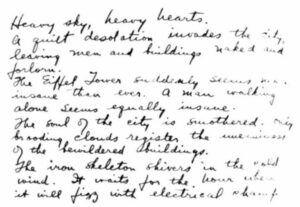 Heavy sky, heavy hearts.
A quiet desolation invades the city,
leaving men and buildings naked and
forlorn.
The Eiffel Tower suddenly seems
insane than ever. A man walking
alone seems equally insane.
The soul of the city is smothered. Only
brooding clouds register the uneasiness
of the bewildered buildings.
The iron skeleton shivers in the cold
wind. It waits for the hour when
it will fizz with electrical champ